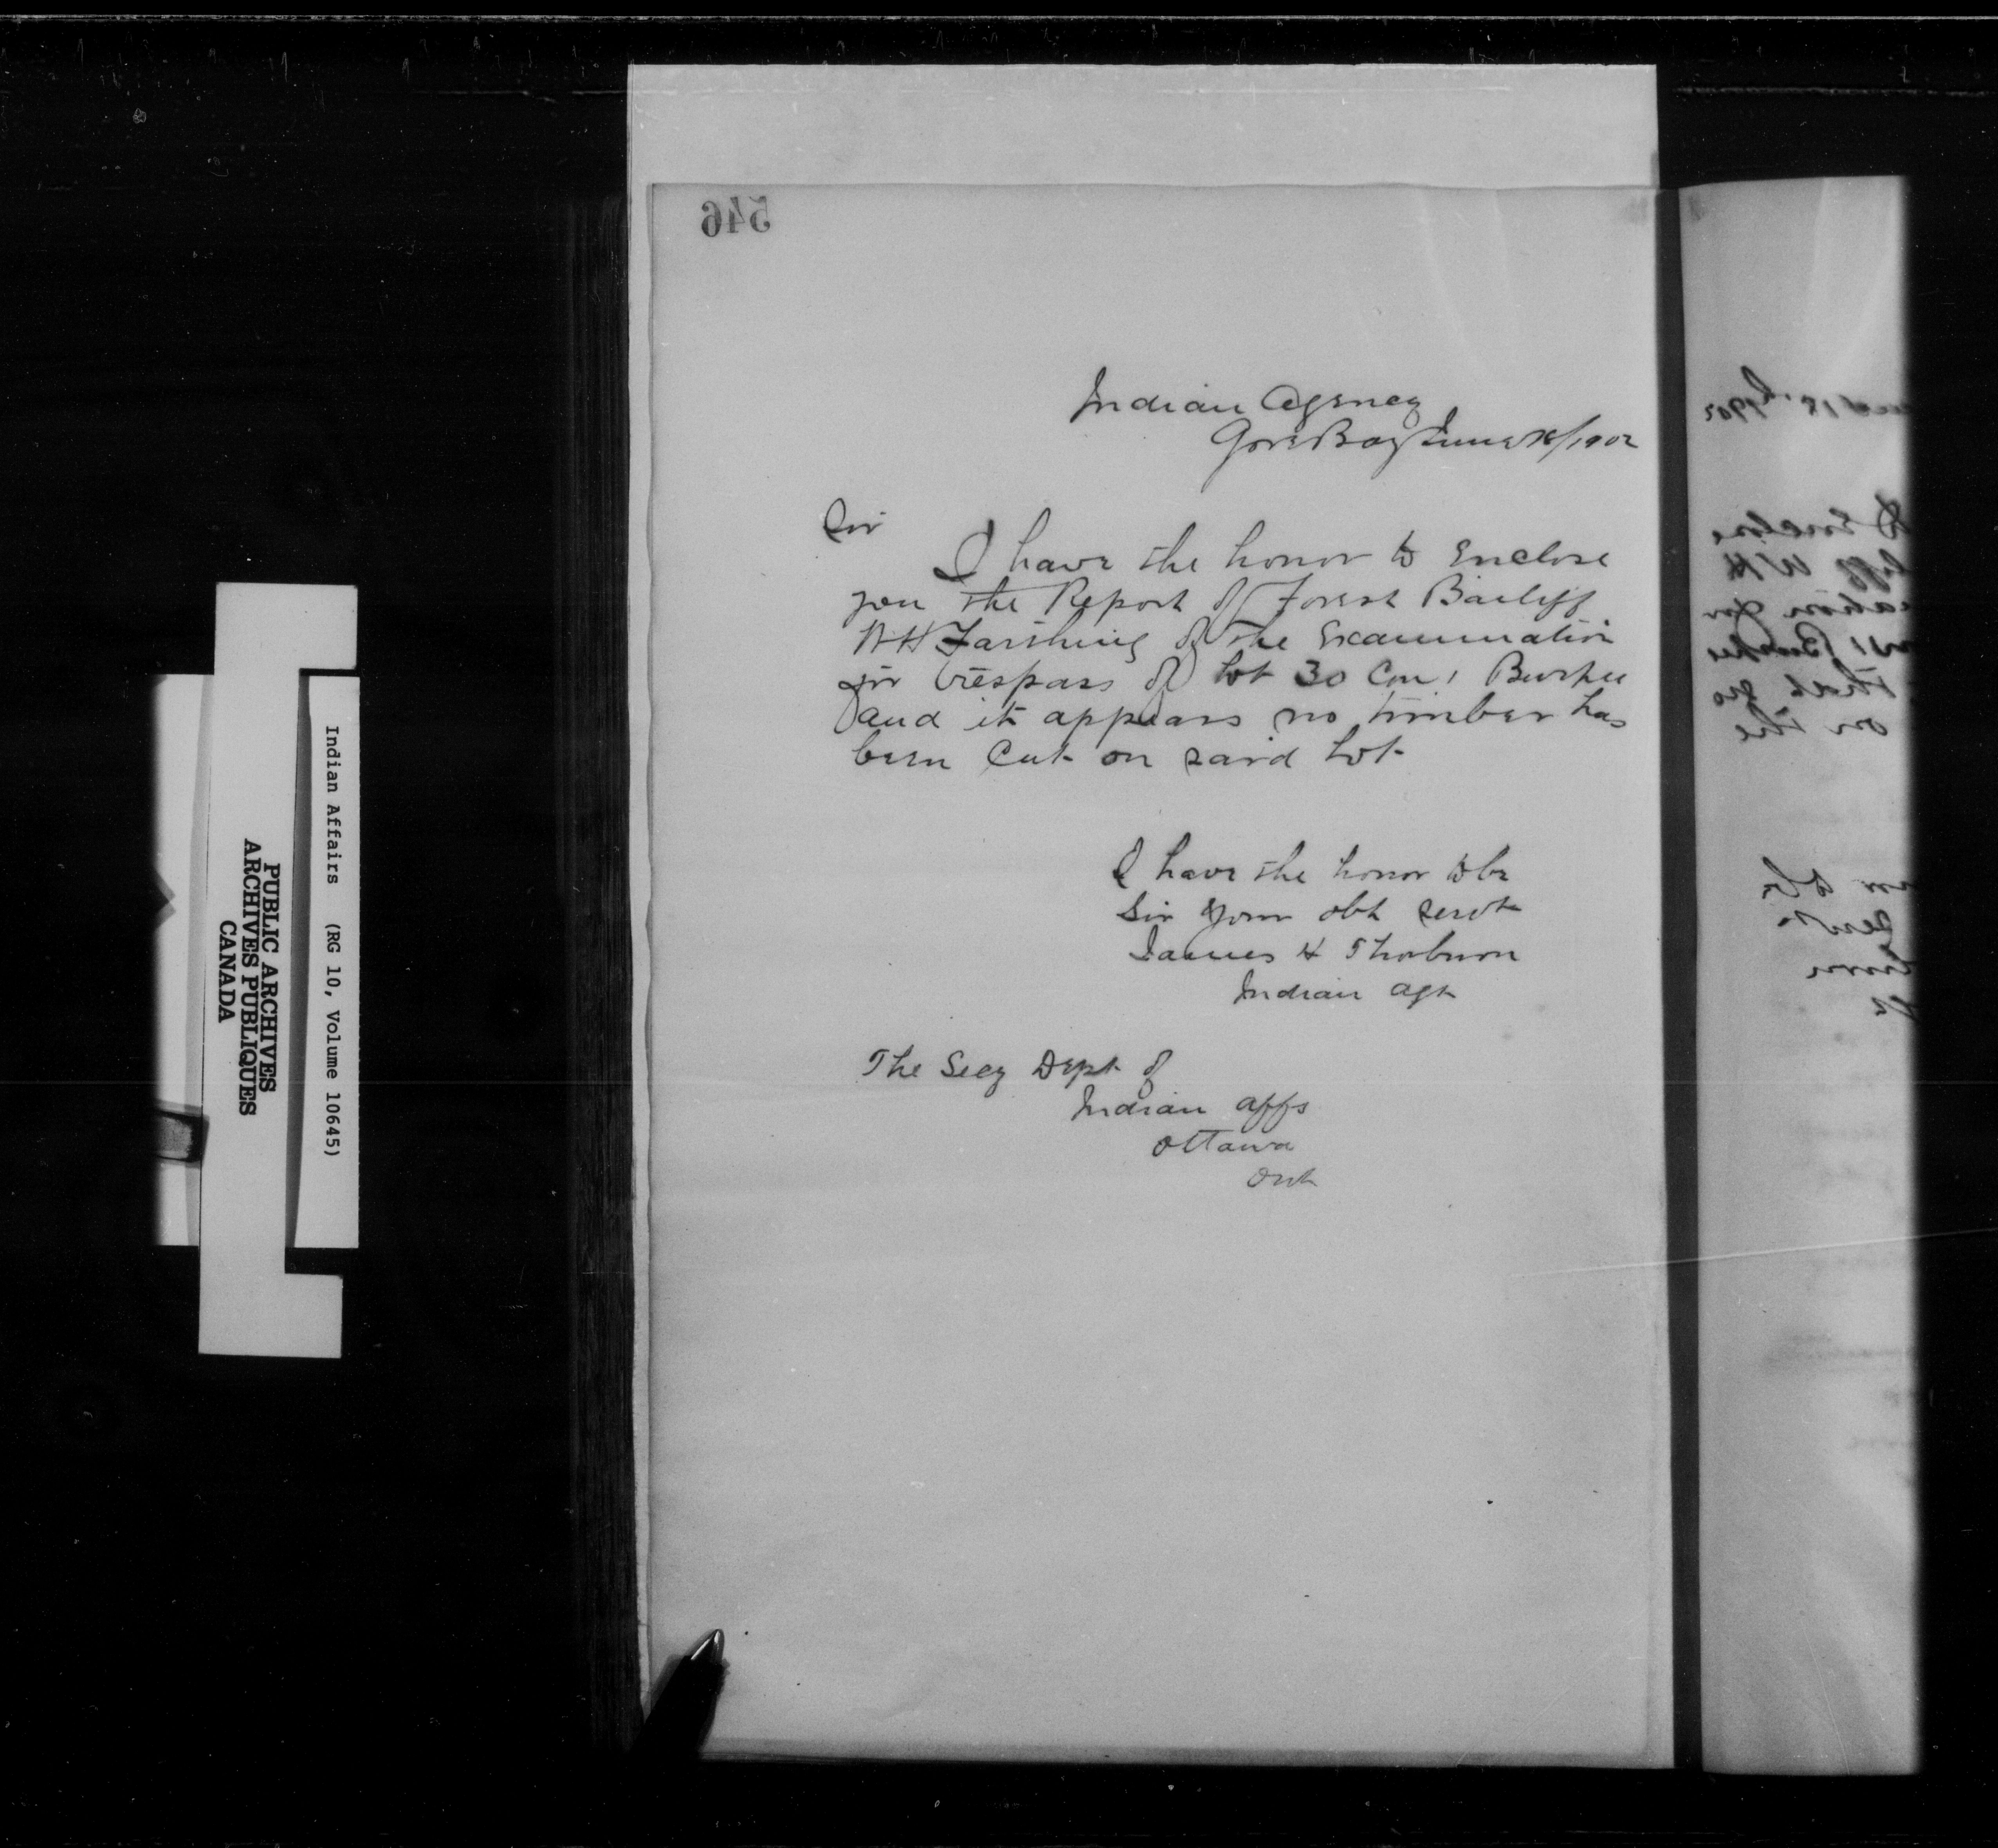 546
Indian Agency
Gore Bay June 18/1902
Sir
I have the honor to Enclose
you the Report of Forest Bailiff
WH Farthing of the Examination
for trespass of Lot 30 Con 1 Burpee
and it appears no timber has
been Cut on said Lot
I have the honor to be
Sir your obt servt
James H Thorburn
Indian Agt
The Secy Dept of
Indian Affs
Ottawa
Ont
Indian Affairs (RG 10, Volume 10645)
PUBLIC ARCHIVES
ARCHIVES PUBLIQUES
CANADA